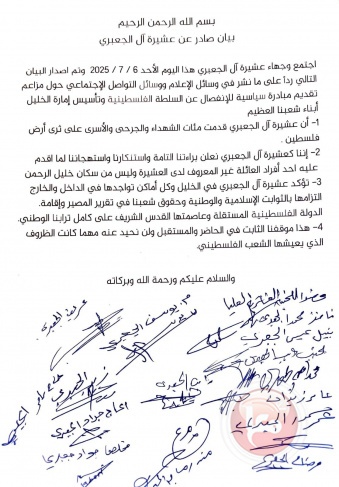 بسم الله الرحمن الرحيم
بيان صادر عن عشيرة آل الجعبري
اجتمع وجهاء عشيرة آل الجعبري هذا اليوم الأحد 6 / 7 / 2025 وتم اصدار البيان
التالي رداً على ما نشر في وسائل الإعلام ووسائل التواصل الإجتماعي حول مزاعم
تقديم مبادرة سياسية للإنفصال عن السلطة الفلسطينية وتأسيس إمارة الخليل
أبناء شعبنا العظيم
1- أن عشيرة آل الجعبري قدمت مئات الشهداء والجرحى والأسرى على ثرى أرض
فلسطين .
2- إننا كعشيرة آل الجعبري نعلن براءتنا التامة وإستنكارنا واستهجاننا لما اقدم
عليه احد أفراد العائلة غير المعروف لدى العشيرة وليس من سكان خليل الرحمن
3- تؤكد عشيرة آل الجعبري في الخليل وكل أماكن تواجدها في الداخل والخارج
التزامها بالثوابت الإسلامية والوطنية وحقوق شعبنا في تقرير المصير وإقامة.
الدولة الفلسطينية المستقلة وعاصمتها القدس الشريف على كامل ترابنا الوطني.
4- هذا موقفنا الثابت في الحاضر والمستقبل ولن نحيد عنه مهما كانت الظروف
الذي يعيشها الشعب الفلسطيني.
والسلام عليكم ورحمة الله وبركاته
يوسف الجعبري
الجعبري